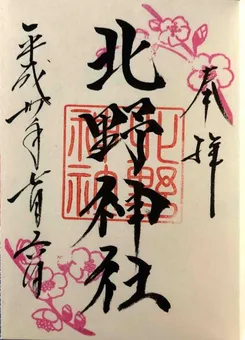 奉拝
北野神社
北野
神社
平成卅年